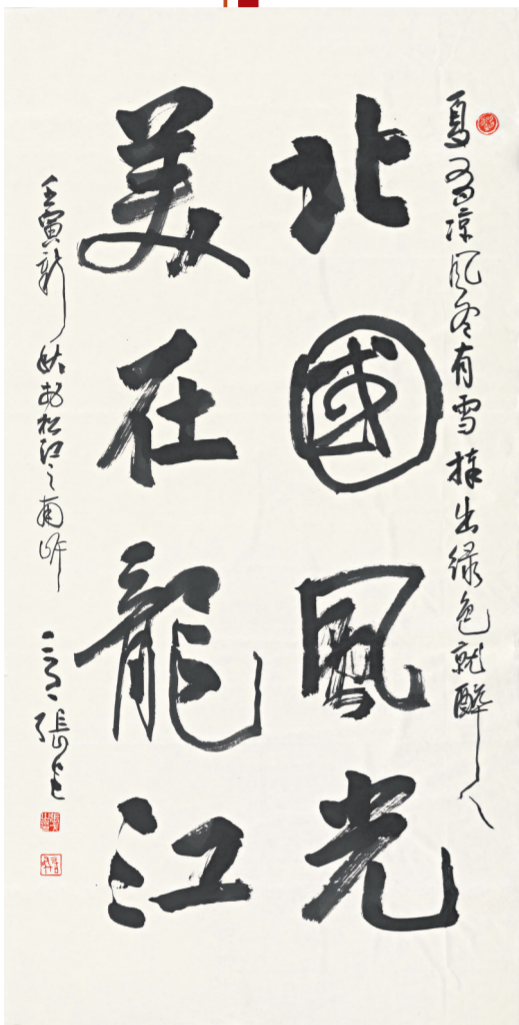 夏有凉风冬有雪捧出绿色就醉人
北國風光
美在龍江
壬寅新秋於松江之南岸
張